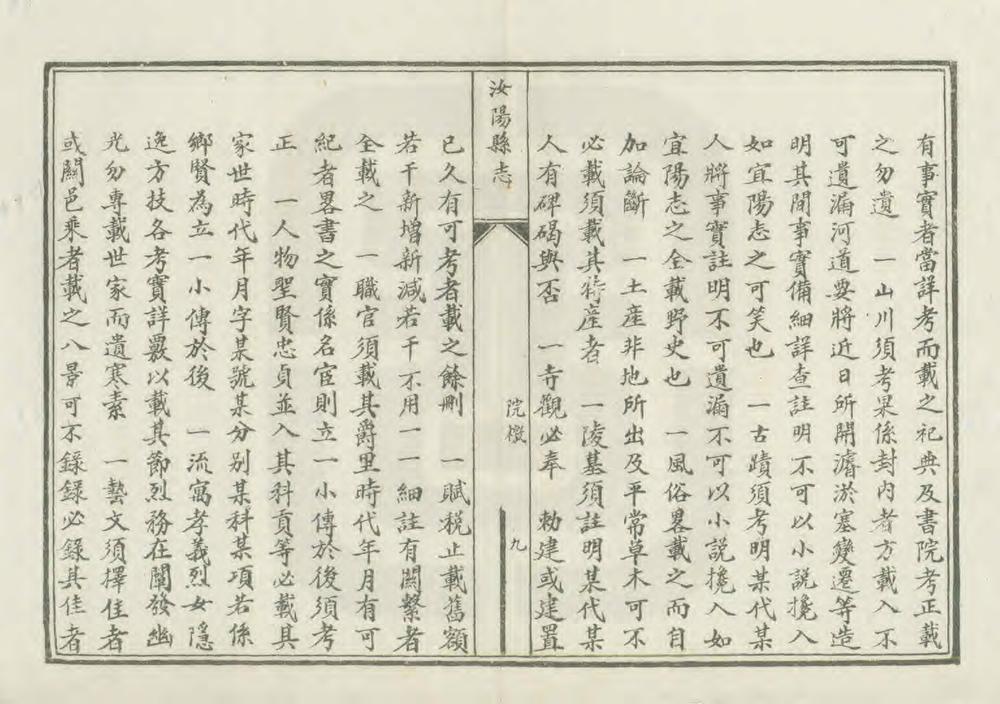 有事實者當詳考而載之祀典及書院考正載
之勿遺　一山川須考果係封內者方載入不
可遺漏河道要將近日所開濬淤塞變遷等造
明其間事實備細詳查註明不可以小說攙入
如宜陽志之可笑也　一古蹟須考明某代某
人將事實註明不可遺漏不可以小說攙入如
宜陽志之全載野史也　一風俗畧載之而自
加論斷　一土產非地所出及平常草木可不
必載須載其特產者　一陵墓須註明某代某
人有碑碣與否　一寺觀必奉　勅建或建置
汝陽縣志
院檄
九
已久有可考者載之餘刪　一賦稅止載舊額
若干新增新減若干不用一一細註有關繫者
全載之　一職官須載其爵里時代年月有可
紀者畧書之實係名宦則立一小傳於後須考
正　一人物聖賢忠貞並入其科貢等必載其
家世時代年月字某號某分別某科某項若係
鄉賢為立一小傳於後　一流寓孝義烈女隱
逸方技各考實詳覈以載其節烈務在闡發幽
光勿專載世家而遺寒素　一藝文須擇佳者
或關邑乘者載之八景可不錄錄必錄其佳者